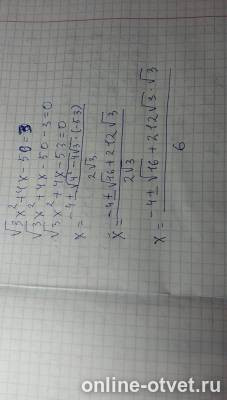 √3x²+4x-50=3
√3x²+4x-50-3=0
√3x²+4x-53=0
x= -4±√4²-4√3·(-53) / 2√3
x= -4±√16+212√3 / 2√3
x= -4±√16+212√3·√3 / 6
online-otvet.ru